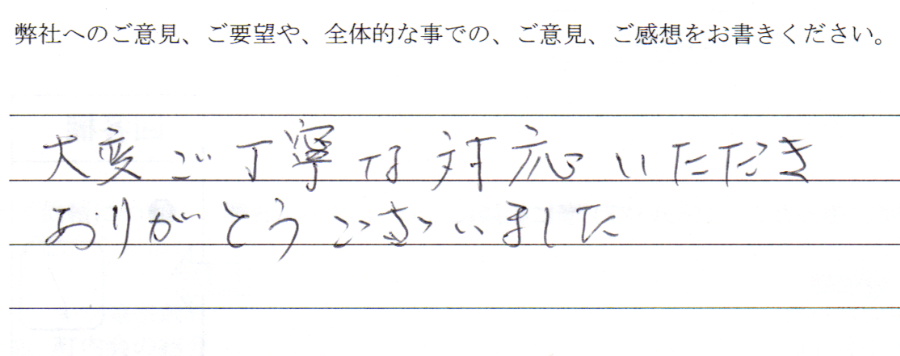 弊社へのご意見、ご要望や、全体的な事での、ご意見、ご感想をお書きください。
大変ご丁寧な対応いただき
ありがとうございました